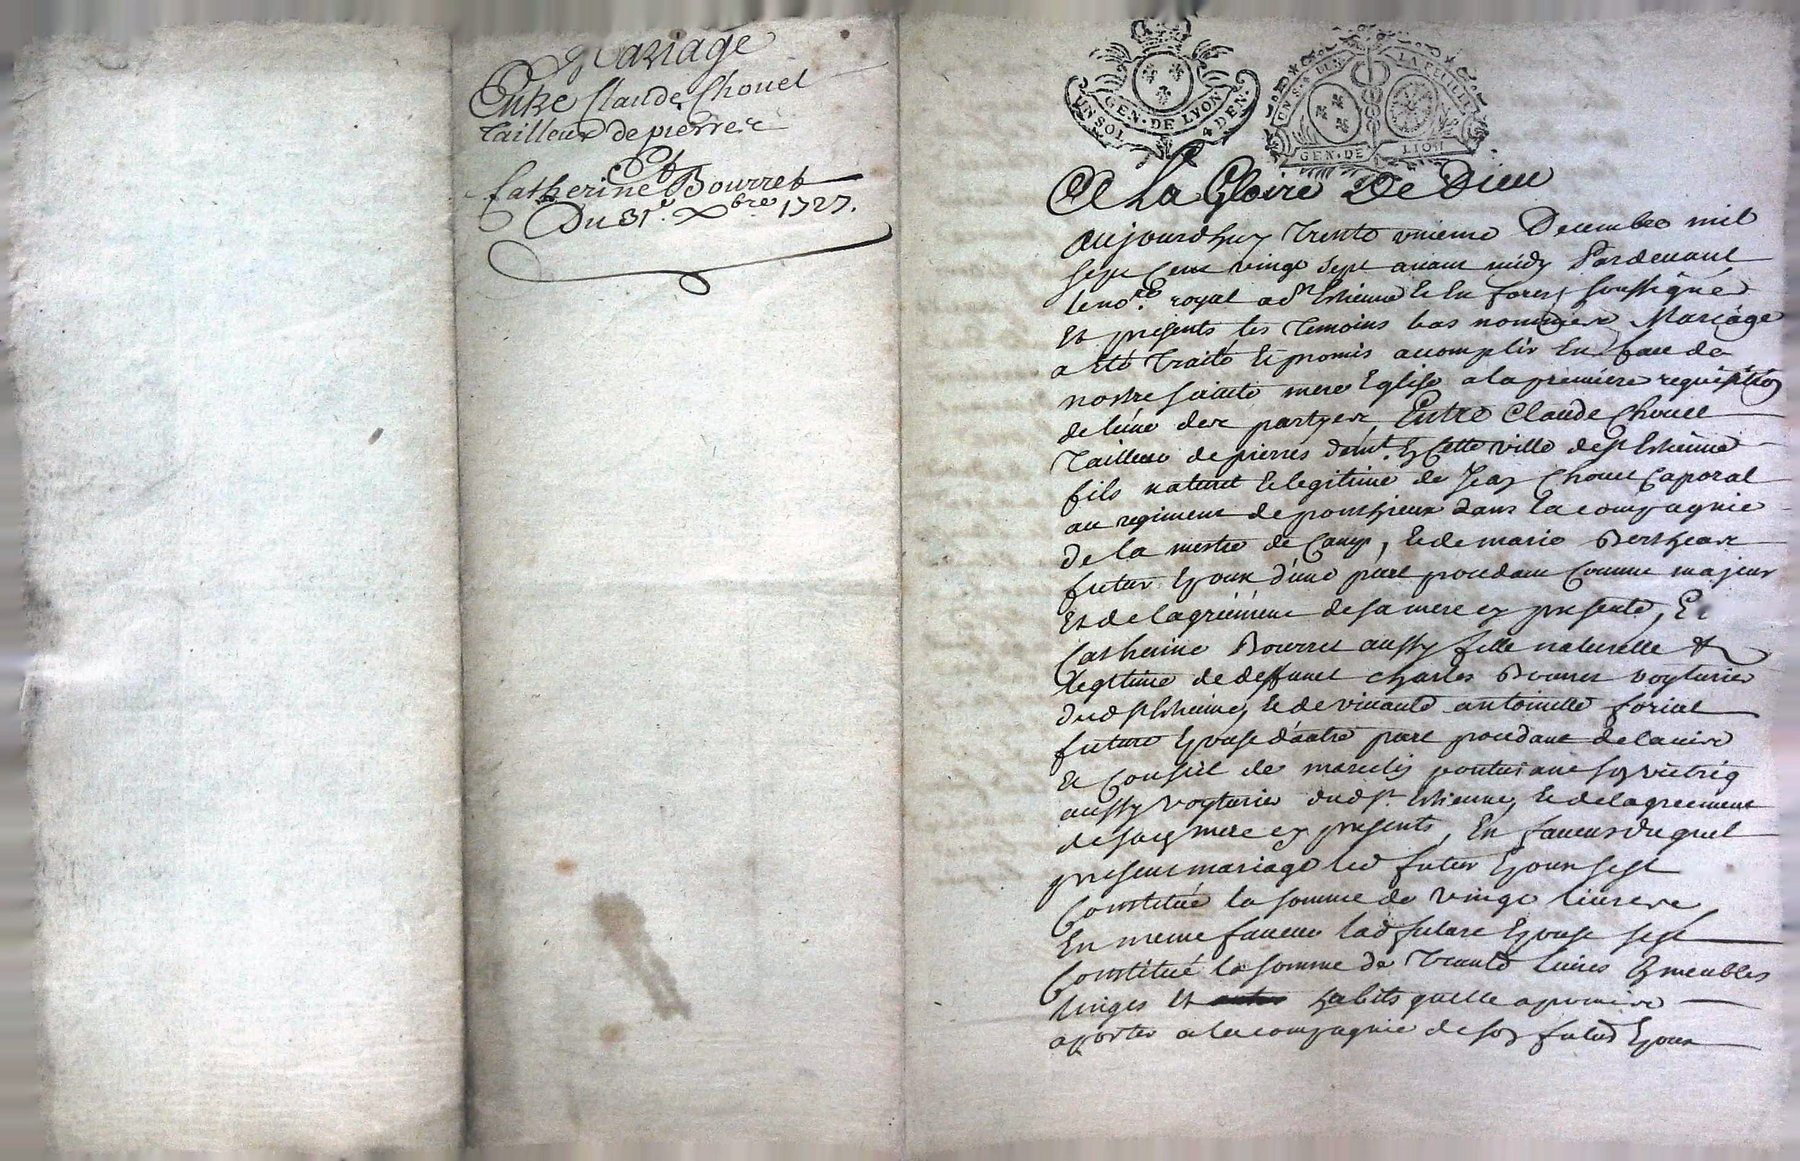 Mariage
Entre Claude Chouel
Tailleur de pierre
Et
Catherine Bourret
Du 31e. Xbre 1727.
UN SOL GEN. DE LYON 4 DEN.
LA FEUILLE
GEN. DE LION
A La Gloire De Dieu
aujourdhuy Trente unieme Decembre mil
sept Cent vingt sept avant midy Pardevant
le nore. royal a St Estienne En forest soussigné
Et presents les Temoins bas nommez Mariage
a esté Traité Et promis accomplir En face de
nostre sainte mere Eglise a la premiere requisition
de lune des partyes, Entre Claude Chouel
Tailleur de pierres demt. En Cette ville de St Estienne
fils naturel Et legitime de Jean Chouel Caporal
au regiment de ponthieux dans la compagnie
de la mestre de Camp, Et de marie
futur Epoux d'une part procedant Comme majeur
Et de lagréément de sa mere cy presente, Et
Catherine Bourret aussy fille naturelle &
legitime de deffunct charles Bourret voyturier
dud St Estienne, Et de vivante antoinette foriat
future Epouse d'autre part procedant de lavis
Et Conseil de
aussy voyturier dud St. Estienne, Et de lagreement
de sad mere cy presents, En faveur duquel
present mariage led futur Epoux sest
Constitué la somme de vingt livres
En meme faveur lad future Epouse sest
Constitué la somme de Trante livres En meubles
linges Et habits quelle a promis
aporter a la compagnie de son futur Epoux